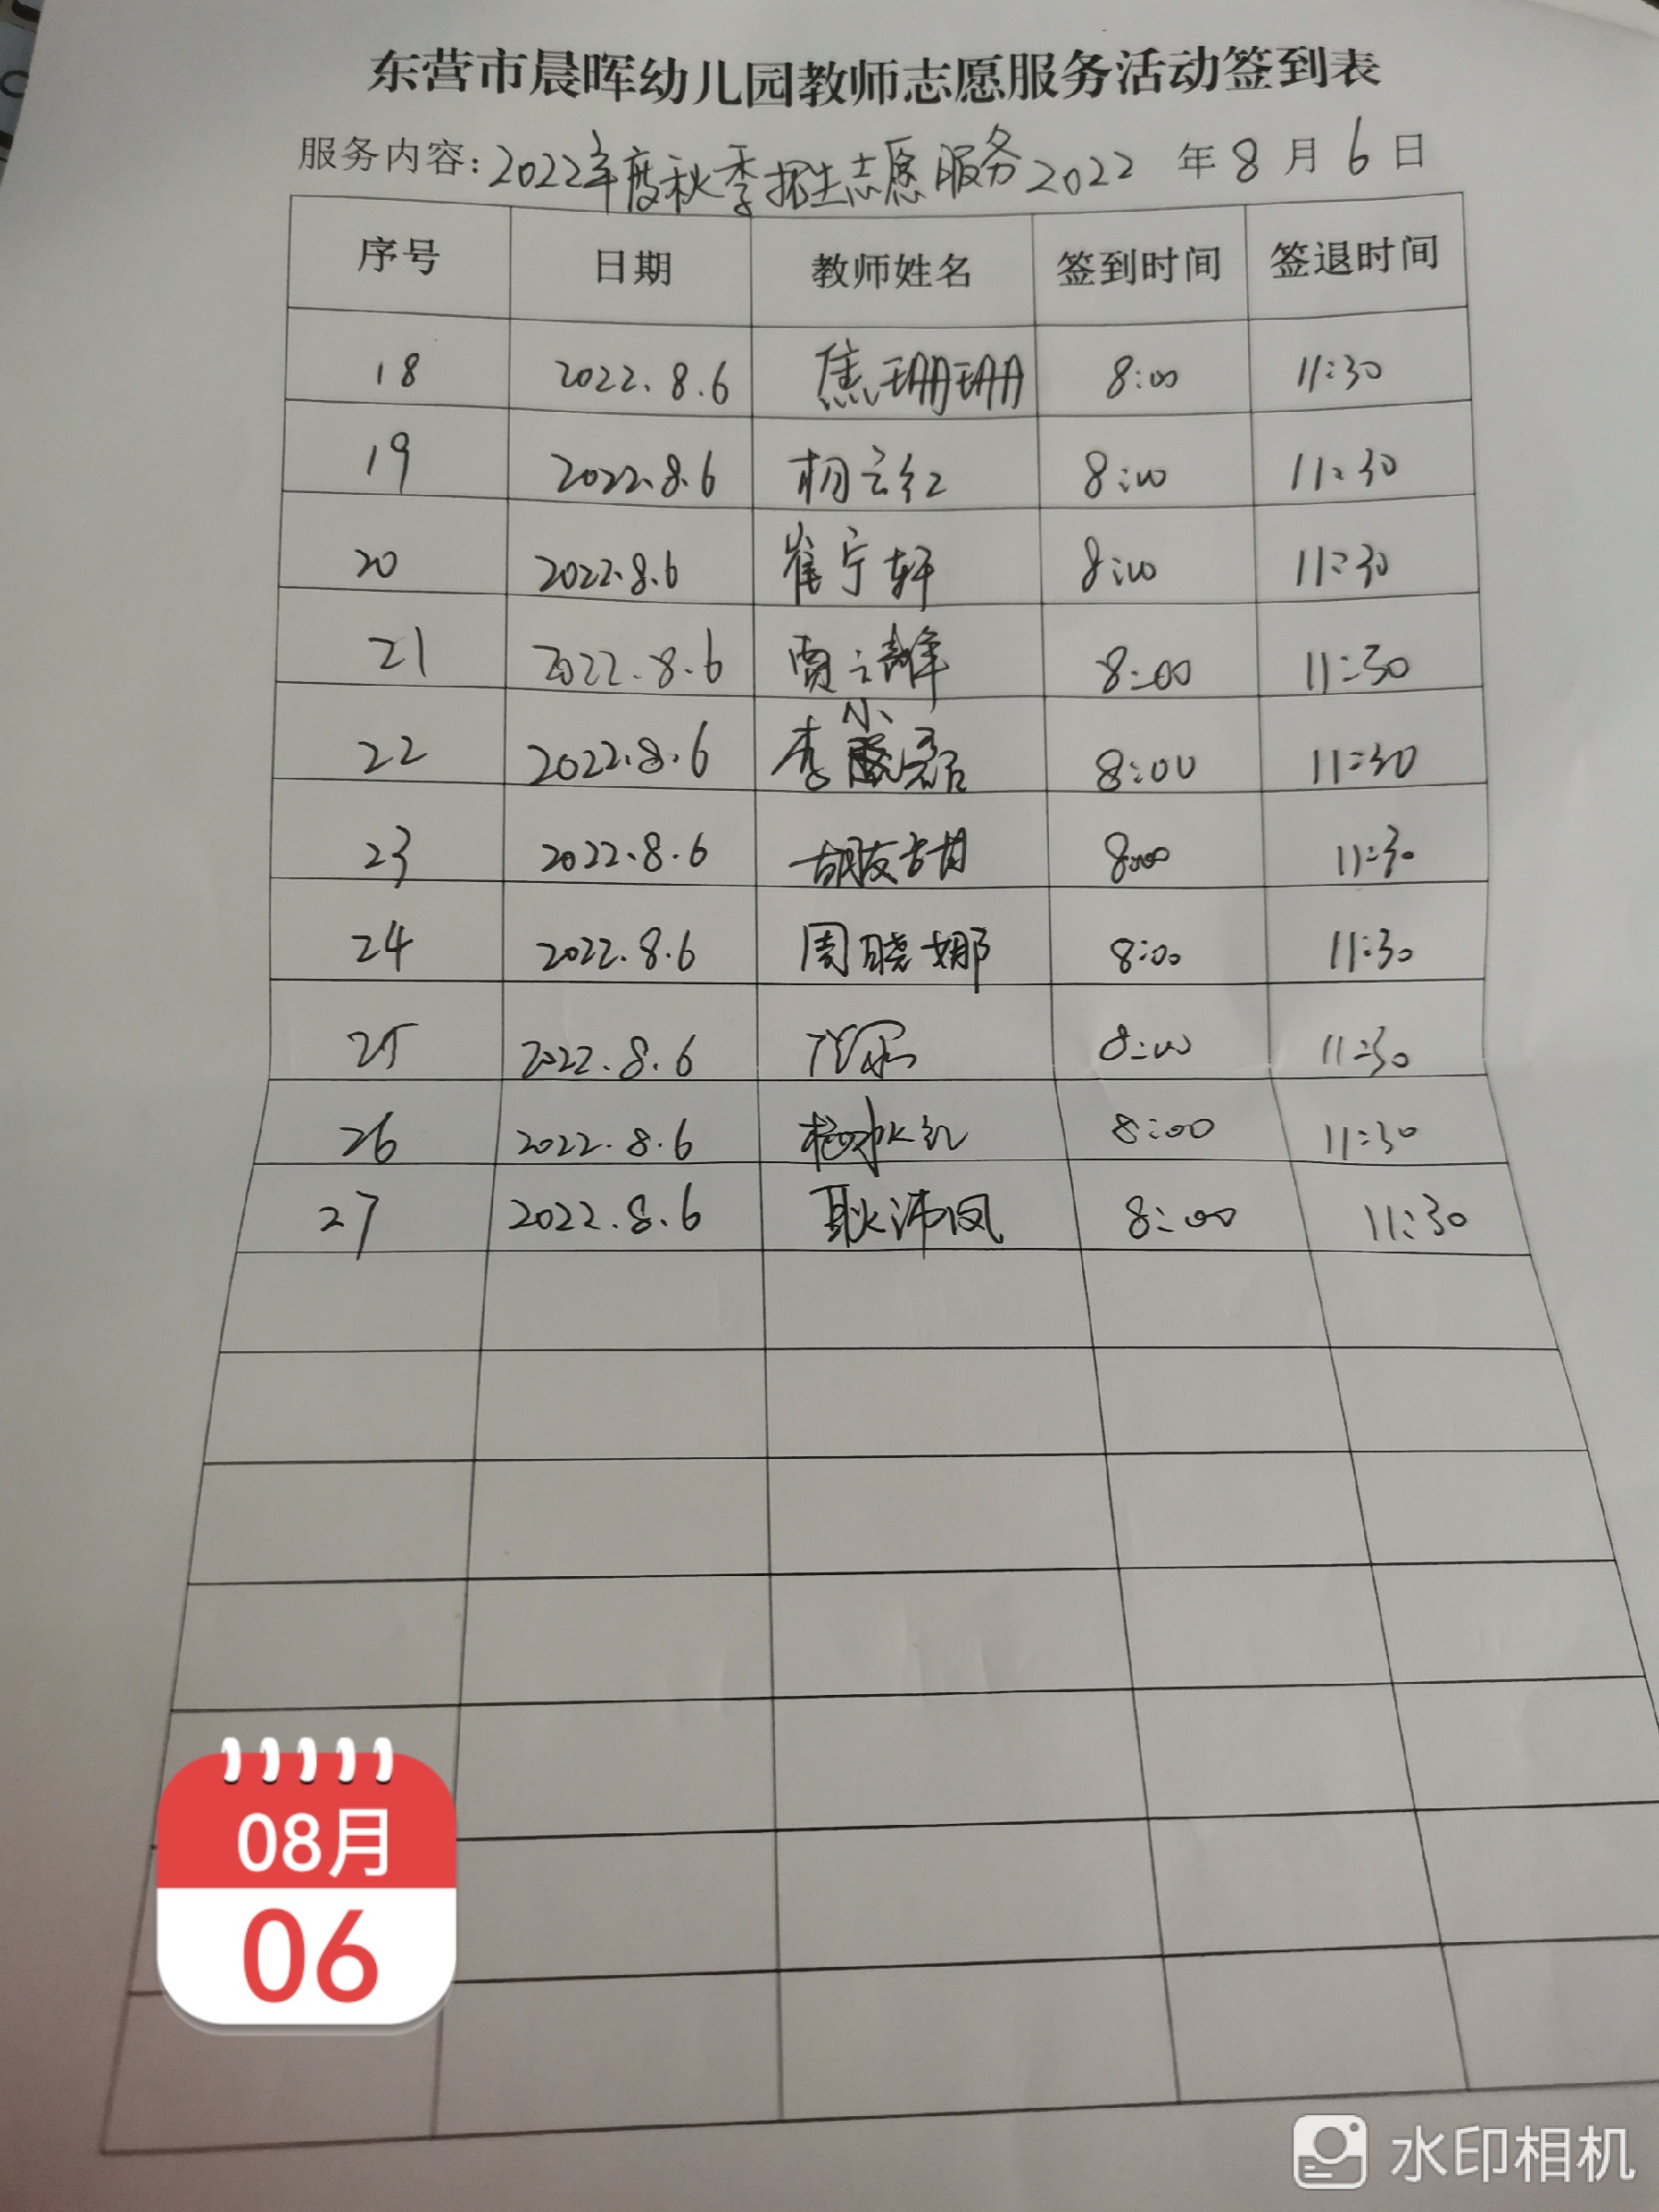 东营市晨晖幼儿园教师志愿服务活动签到表
服务内容：2022年度秋季招生志愿服务 2022 年 8 月 6 日
序号 日期 教师姓名 签到时间 签退时间
18 2022.8.6 焦珊珊 8:00 11:30
19 2022.8.6 杨云红 8:00 11:30
20 2022.8.6 崔宁轩 8:00 11:30
21 2022.8.6 贾云 8:00 11:30
22 2022.8.6 李小 8:00 11:30
23 2022.8.6 胡友甜 8:00 11:30
24 2022.8.6 周晓娜 8:00 11:30
25 2022.8.6 8:00 11:30
26 2022.8.6 8:00 11:30
27 2022.8.6 耿沛凤 8:00 11:30
08月
06
水印相机